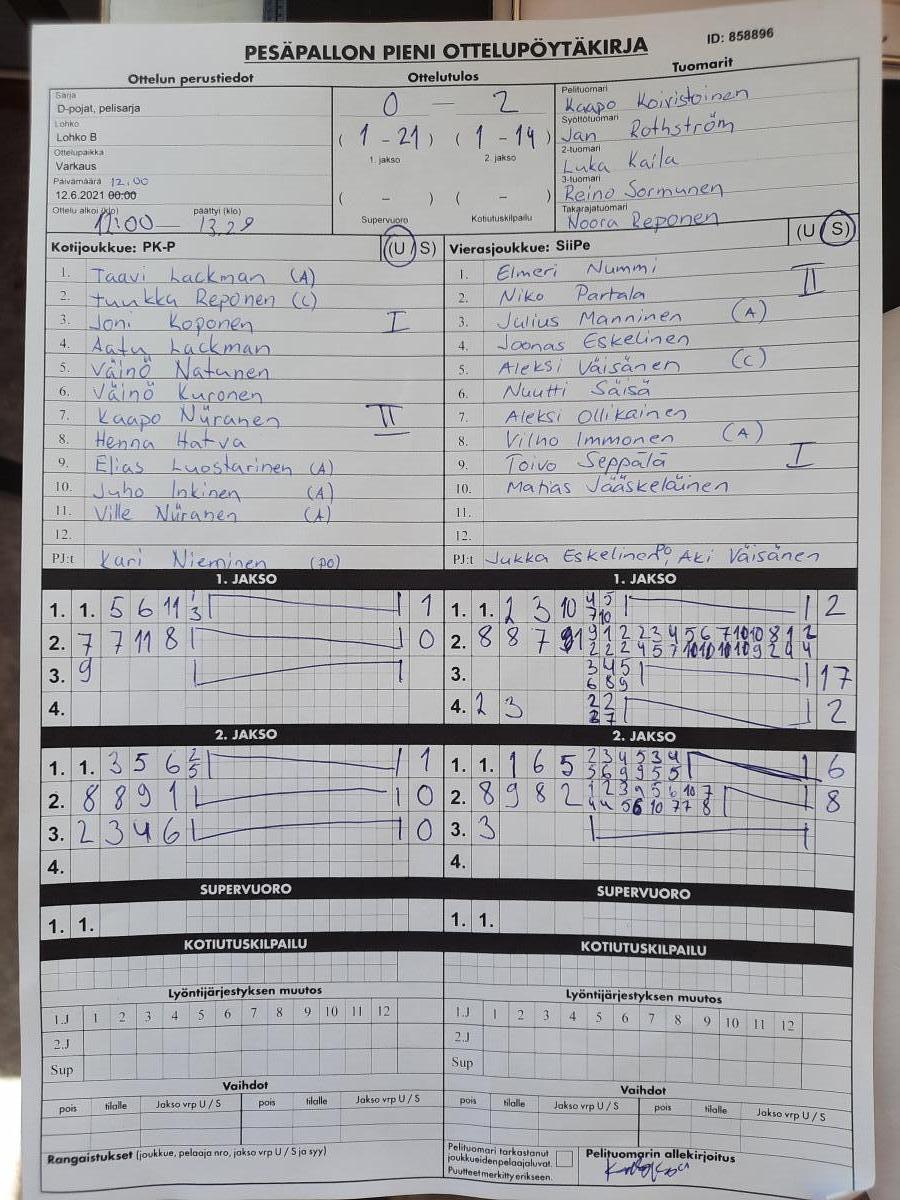 PESÄPALLON PIENI OTTELUPÖYTÄKIRJA
ID: 858896
Ottelun perustiedot
Sarja
D-pojat, pelisarja
Lohko
Lohko B
Ottelupaikka
Varkaus
Päivämäärä 12:00
12.6.2021 00:00
Ottelu alkoi (klo) päättyi (klo)
12:00 — 13.29
Ottelutulos
0 — 2
(1 - 21) (1 - 14)
1. jakso 2. jakso
( - ) ( - )
Supervuoro Kotiutuskilpailu
Tuomarit
Pelituomari
Kaapo Koivistoinen
Syöttötuomari
Jan Rothström
2-tuomari
Luka Kaila
3-tuomari
Reino Sormunen
Takarajatuomari
Noora Reponen
Kotijoukkue: PK-P (U S)
1. Taavi Lackman (A)
2. Tuukka Reponen (C)
3. Joni Koponen I
4. Aatu Lackman
5. Väinö Natunen
6. Väinö Kuronen
7. Kaapo Niiranen II
8. Henna Hatva
9. Elias Luostarinen (A)
10. Juho Inkinen (A)
11. Ville Niiranen (A)
12.
PJ:t Kari Nieminen (PO)
Vierasjoukkue: SiiPe (U S)
1. Elmeri Nummi
2. Niko Partala II
3. Julius Manninen (A)
4. Joonas Eskelinen
5. Aleksi Väisänen (C)
6. Nuutti Säisä
7. Aleksi Ollikainen
8. Vilho Immonen (A)
9. Toivo Seppälä I
10. Matias Jääskeläinen
11.
12.
PJ:t Jukka Eskelinen PO, Aki Väisänen
1. JAKSO
1. 1. 5 6 11 1 3 1
2. 7 7 11 8 0
3. 9
4.
1. JAKSO
1. 1. 2 3 10 4 5 7 10 2
2. 8 8 7
3. 3 4 5 6 8 9 17
4. 2 3 2 2 2 7 2
2. JAKSO
1. 1. 3 5 6 2 5 1
2. 8 8 9 1 0
3. 2 3 4 6 0
4.
2. JAKSO
1. 1. 1 6 5 2 3 4 5 3 4 5 6 9 9 5 5 6
2. 8 9 8 2 8
3. 3
4.
SUPERVUORO
1. 1.
SUPERVUORO
1. 1.
KOTIUTUSKILPAILU
KOTIUTUSKILPAILU
Lyöntijärjestyksen muutos
1.J 1 2 3 4 5 6 7 8 9 10 11 12
2.J
Sup
Lyöntijärjestyksen muutos
1.J 1 2 3 4 5 6 7 8 9 10 11 12
2.J
Sup
Vaihdot
pois tilalle Jakso vrp U / S pois tilalle Jakso vrp U / S
Vaihdot
pois tilalle Jakso vrp U / S pois tilalle Jakso vrp U / S
Rangaistukset (joukkue, pelaaja nro, jakso vrp U / S ja syy)
Pelituomari tarkastanut
joukkueiden pelaajaluvat.
Puutteet merkitty erikseen.
Pelituomarin allekirjoitus